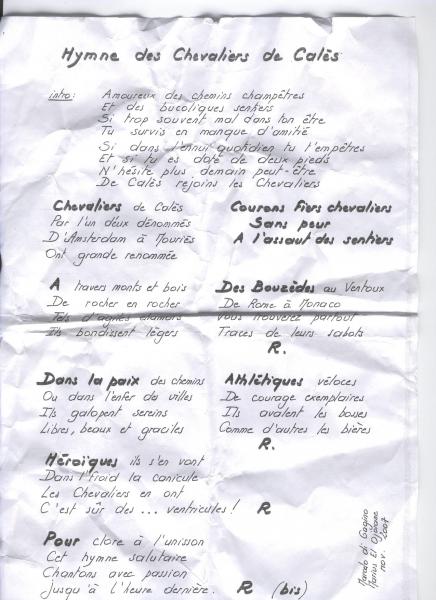 Hymne des Chevaliers de Calès
intro: Amoureux des chemins champêtres
Et des bucoliques sentiers
Si trop souvent mal dans ton être
Tu survis en manque d'amitié
Si dans l'ennui quotidien tu t'empêtres
Et si tu es doté de deux pieds
N'hésite plus demain peut-être
De Calès rejoins les Chevaliers
Chevaliers de Calès
Par l'un d'eux dénommés
D'Amsterdam à Mouriès
Ont grande renommée
Courons fiers chevaliers
Sans peur
A l'assaut des sentiers
A travers monts et bois
De rocher en rocher
Tels d'agiles chamois
Ils bondissent légers
Des Bouzèdes au Ventoux
De Rome à Monaco
Vous trouverez partout
Traces de leurs sabots
R.
Dans la paix des chemins
Ou dans l'enfer des villes
Ils galopent sereins
Libres, beaux et graciles
Athlétiques véloces
De courage exemplaires
Ils avalent les bosses
Comme d'autres les bières
R.
Héroïques ils s'en vont
Dans l'froid la canicule
Les Chevaliers en ont
C'est sûr des ... ventricules ! R
Pour clore à l'unisson
Cet hymne salutaire
Chantons avec passion
Jusqu'à l'heure dernière. R (bis)
nov. 2007